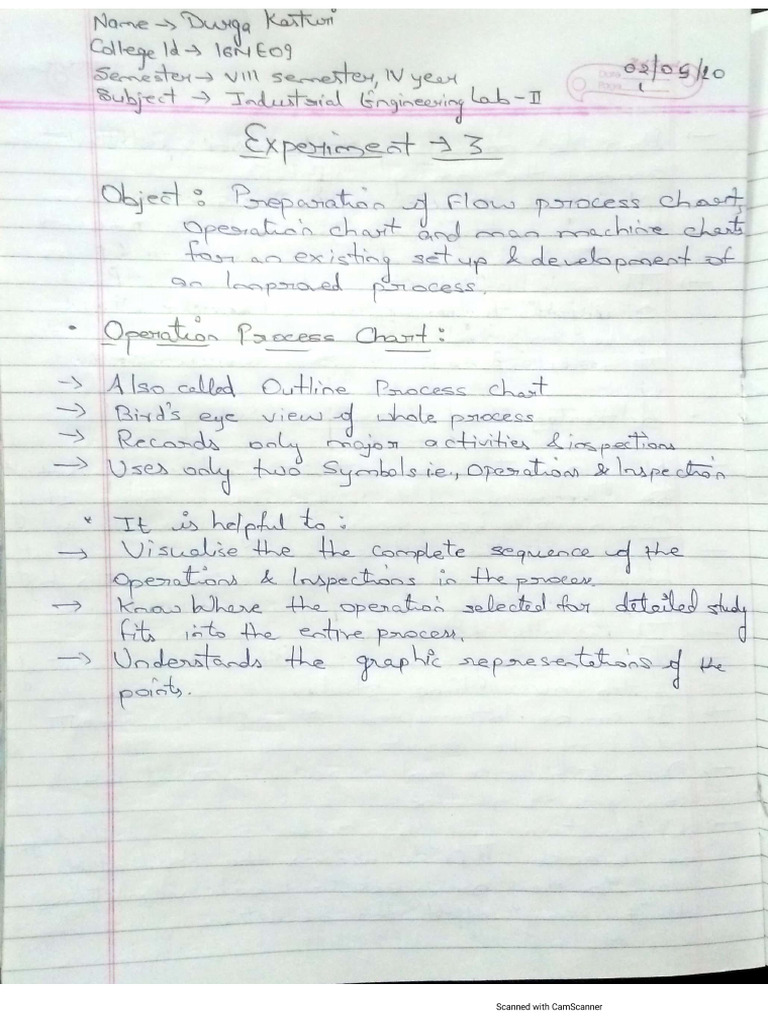 Name → Durga Kasturi
College Id → 16ME09
Semester → VIII semester, IV year
02/05/20
Subject → Industrial Engineering Lab - II
Experiment → 3
Object : Preparation of Flow process chart,
Operation chart and man machine charts
for an existing set up & development of
an Improved process.
• Operation Process Chart :
→ Also called Outline Process chart
→ Bird's eye view of whole process
→ Records only major activities & inspections
→ Uses only two Symbols ie., Operations & Inspection
* It is helpful to :
→ Visualise the the complete sequence of the
Operations & Inspections in the process.
→ Know Where the operation selected for detailed study
fits into the entire process.
→ Understands the graphic representations of the
points.
Scanned with CamScanner